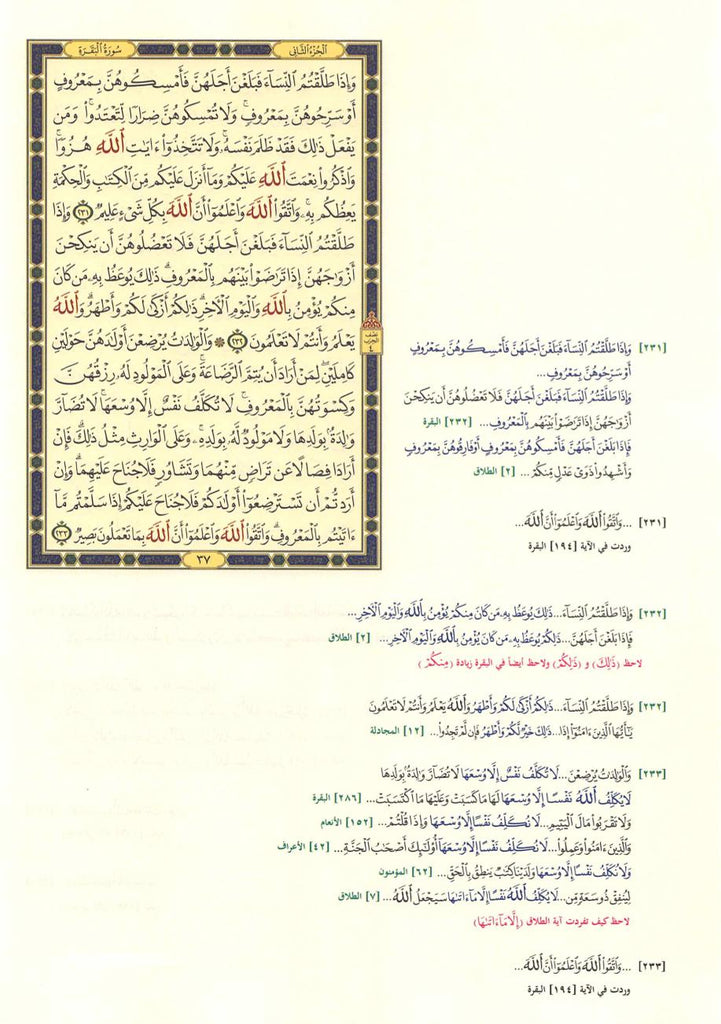 الجزء الثاني
سورة البقرة
وَإِذَا طَلَّقْتُمُ ٱلنِّسَآءَ فَبَلَغْنَ أَجَلَهُنَّ فَأَمْسِكُوهُنَّ بِمَعْرُوفٍ
أَوْ سَرِّحُوهُنَّ بِمَعْرُوفٍ ۚ وَلَا تُمْسِكُوهُنَّ ضِرَارًا لِّتَعْتَدُوا۟ ۚ وَمَن
يَفْعَلْ ذَٰلِكَ فَقَدْ ظَلَمَ نَفْسَهُۥ ۚ وَلَا تَتَّخِذُوٓا۟ ءَايَٰتِ ٱللَّهِ هُزُوًا ۚ
وَٱذْكُرُوا۟ نِعْمَتَ ٱللَّهِ عَلَيْكُمْ وَمَآ أَنزَلَ عَلَيْكُم مِّنَ ٱلْكِتَٰبِ وَٱلْحِكْمَةِ
يَعِظُكُم بِهِۦ ۚ وَٱتَّقُوا۟ ٱللَّهَ وَٱعْلَمُوٓا۟ أَنَّ ٱللَّهَ بِكُلِّ شَىْءٍ عَلِيمٌ ٢٣١ وَإِذَا
طَلَّقْتُمُ ٱلنِّسَآءَ فَبَلَغْنَ أَجَلَهُنَّ فَلَا تَعْضُلُوهُنَّ أَن يَنكِحْنَ
أَزْوَٰجَهُنَّ إِذَا تَرَٰضَوْا۟ بَيْنَهُم بِٱلْمَعْرُوفِ ۗ ذَٰلِكَ يُوعَظُ بِهِۦ مَن كَانَ
مِنكُمْ يُؤْمِنُ بِٱللَّهِ وَٱلْيَوْمِ ٱلْءَاخِرِ ۗ ذَٰلِكُمْ أَزْكَىٰ لَكُمْ وَأَطْهَرُ ۗ وَٱللَّهُ
يَعْلَمُ وَأَنتُمْ لَا تَعْلَمُونَ ٢٣٢ ۞ وَٱلْوَٰلِدَٰتُ يُرْضِعْنَ أَوْلَٰدَهُنَّ حَوْلَيْنِ
كَامِلَيْنِ ۖ لِمَنْ أَرَادَ أَن يُتِمَّ ٱلرَّضَاعَةَ ۚ وَعَلَى ٱلْمَوْلُودِ لَهُۥ رِزْقُهُنَّ
وَكِسْوَتُهُنَّ بِٱلْمَعْرُوفِ ۚ لَا تُكَلَّفُ نَفْسٌ إِلَّا وُسْعَهَا ۚ لَا تُضَآرَّ
وَٰلِدَةٌۢ بِوَلَدِهَا وَلَا مَوْلُودٌ لَّهُۥ بِوَلَدِهِۦ ۚ وَعَلَى ٱلْوَارِثِ مِثْلُ ذَٰلِكَ ۗ فَإِنْ
أَرَادَا فِصَالًا عَن تَرَاضٍ مِّنْهُمَا وَتَشَاوُرٍ فَلَا جُنَاحَ عَلَيْهِمَا ۗ وَإِنْ
أَرَدتُّمْ أَن تَسْتَرْضِعُوٓا۟ أَوْلَٰدَكُمْ فَلَا جُنَاحَ عَلَيْكُمْ إِذَا سَلَّمْتُم مَّآ
ءَاتَيْتُم بِٱلْمَعْرُوفِ ۗ وَٱتَّقُوا۟ ٱللَّهَ وَٱعْلَمُوٓا۟ أَنَّ ٱللَّهَ بِمَا تَعْمَلُونَ بَصِيرٌ ٢٣٣
٣٧
نصف
الحزب
٤
[٢٣١] وَإِذَا طَلَّقْتُمُ ٱلنِّسَآءَ فَبَلَغْنَ أَجَلَهُنَّ فَأَمْسِكُوهُنَّ بِمَعْرُوفٍ
أَوْ سَرِّحُوهُنَّ بِمَعْرُوفٍ...
وَإِذَا طَلَّقْتُمُ ٱلنِّسَآءَ فَبَلَغْنَ أَجَلَهُنَّ فَلَا تَعْضُلُوهُنَّ أَن يَنكِحْنَ
أَزْوَٰجَهُنَّ إِذَا تَرَٰضَوْا۟ بَيْنَهُم بِٱلْمَعْرُوفِ... [٢٣٢] البقرة
فَإِذَا بَلَغْنَ أَجَلَهُنَّ فَأَمْسِكُوهُنَّ بِمَعْرُوفٍ أَوْ فَارِقُوهُنَّ بِمَعْرُوفٍ
وَأَشْهِدُوا۟ ذَوَىْ عَدْلٍ مِّنكُمْ... [٢] الطلاق
[٢٣١] ...وَٱتَّقُوا۟ ٱللَّهَ وَٱعْلَمُوٓا۟ أَنَّ ٱللَّهَ...
وردت في الآية [١٩٤] البقرة
[٢٣٢] وَإِذَا طَلَّقْتُمُ ٱلنِّسَآءَ...ذَٰلِكَ يُوعَظُ بِهِۦ مَن كَانَ مِنكُمْ يُؤْمِنُ بِٱللَّهِ وَٱلْيَوْمِ ٱلْءَاخِرِ...
فَإِذَا بَلَغْنَ أَجَلَهُنَّ...ذَٰلِكُمْ يُوعَظُ بِهِۦ مَن كَانَ يُؤْمِنُ بِٱللَّهِ وَٱلْيَوْمِ ٱلْءَاخِرِ... [٢] الطلاق
لاحظ (ذَٰلِكَ) و (ذَٰلِكُمْ) ولاحظ أيضاً في البقرة زيادة (مِنكُمْ)
[٢٣٢] وَإِذَا طَلَّقْتُمُ ٱلنِّسَآءَ...ذَٰلِكُمْ أَزْكَىٰ لَكُمْ وَأَطْهَرُ وَٱللَّهُ يَعْلَمُ وَأَنتُمْ لَا تَعْلَمُونَ
يَٰٓأَيُّهَا ٱلَّذِينَ ءَامَنُوٓا۟ إِذَا...ذَٰلِكَ خَيْرٌ لَّكُمْ وَأَطْهَرُ فَإِن لَّمْ تَجِدُوا۟... [١٢] المجادلة
[٢٣٣] وَٱلْوَٰلِدَٰتُ يُرْضِعْنَ...لَا تُكَلَّفُ نَفْسٌ إِلَّا وُسْعَهَا لَا تُضَآرَّ وَٰلِدَةٌۢ بِوَلَدِهَا
لَا يُكَلِّفُ ٱللَّهُ نَفْسًا إِلَّا وُسْعَهَا لَهَا مَا كَسَبَتْ وَعَلَيْهَا مَا ٱكْتَسَبَتْ... [٢٨٦] البقرة
وَلَا تَقْرَبُوا۟ مَالَ ٱلْيَتِيمِ...لَا نُكَلِّفُ نَفْسًا إِلَّا وُسْعَهَا وَإِذَا قُلْتُمْ... [١٥٢] الأنعام
وَٱلَّذِينَ ءَامَنُوا۟ وَعَمِلُوا۟...لَا نُكَلِّفُ نَفْسًا إِلَّا وُسْعَهَآ أُو۟لَٰٓئِكَ أَصْحَٰبُ ٱلْجَنَّةِ... [٤٢] الأعراف
وَلَا نُكَلِّفُ نَفْسًا إِلَّا وُسْعَهَا وَلَدَيْنَا كِتَٰبٌ يَنطِقُ بِٱلْحَقِّ... [٦٢] المؤمنون
لِيُنفِقْ ذُو سَعَةٍ مِّن...لَا يُكَلِّفُ ٱللَّهُ نَفْسًا إِلَّا مَآ ءَاتَىٰهَا سَيَجْعَلُ ٱللَّهُ... [٧] الطلاق
لاحظ كيف تفردت آية الطلاق (إِلَّا مَآ ءَاتَىٰهَا)
[٢٣٣] ...وَٱتَّقُوا۟ ٱللَّهَ وَٱعْلَمُوٓا۟ أَنَّ ٱللَّهَ...
وردت في الآية [١٩٤] البقرة